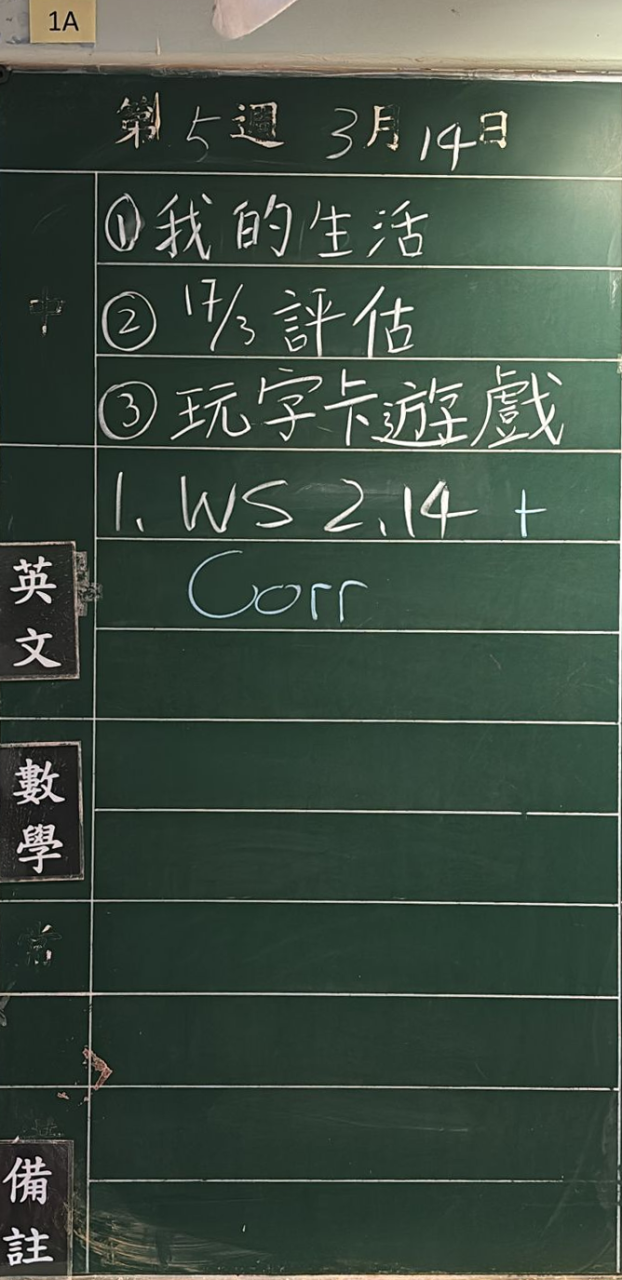 1A
第 5 週 3月 14日
① 我的生活
中
② 17/3 評估
③ 玩字卡遊戲
1. WS 2.14 +
Corr
英文
數學
常
備註